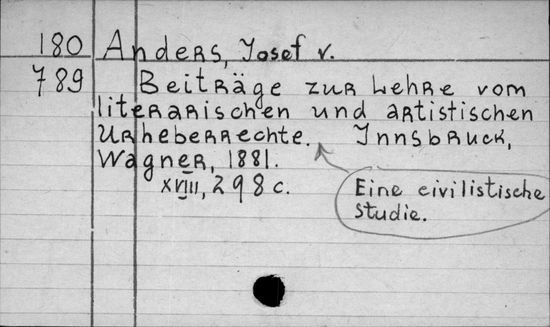 180 Anders, Josef v.
789 Beiträge zur Lehre vom
literarischen und artistischen
Urheberrechte. Innsbruck,
Wagner, 1881.
XVIII, 298 c.
Eine civilistische
Studie.